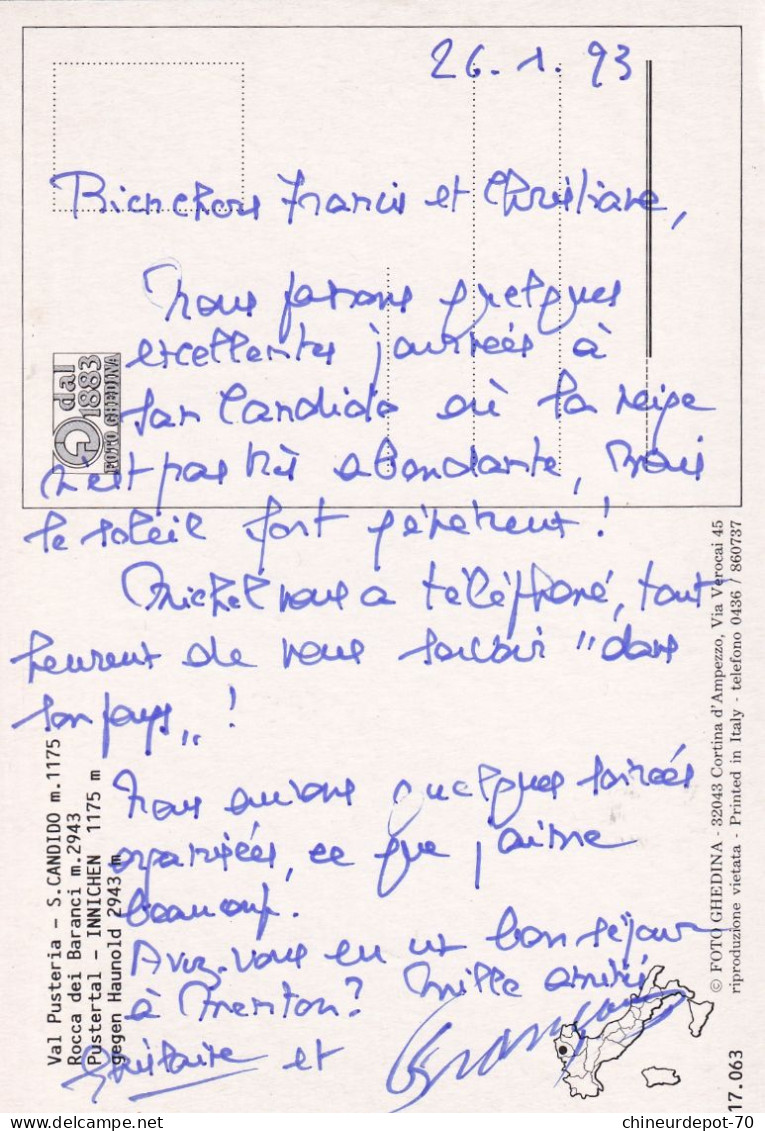 26.1.93
Bien chers Francis et Christiane,
Nous passons quelques
excellentes journées à
San Candido où la neige
n'est pas très abondante, mais
le soleil fort généreux !
Michel nous a téléphoné, tout
heureux de nous savoir "dans
son pays" !
Nous avions quelques soirées
organisées, ce que j'aime
beaucoup.
Avez-vous eu un bon séjour
à Menton ? Mille amitiés
Ghislaine et
dal
1883
FOTO GHEDINA
Val Pusteria - S.CANDIDO m.1175
Rocca dei Baranci m.2943
Pustertal - INNICHEN 1175 m
gegen Haunold 2943 m
© FOTO GHEDINA - 32043 Cortina d'Ampezzo, Via Verocai 45
riproduzione vietata - Printed in Italy - telefono 0436 / 860737
17.063
chineurdepot-70